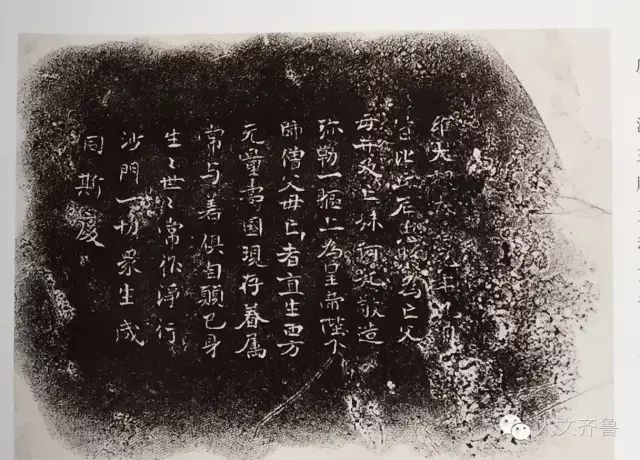 比丘尼為亡父
母并及亡妹敬造
弥勒一軀上為皇帝陛下
師僧父母亡者直生西方
无量壽國現存眷属
常与善俱自願己身
生〻世〻常作淨行
沙門一切眾生咸
同斯慶
人文齐鲁